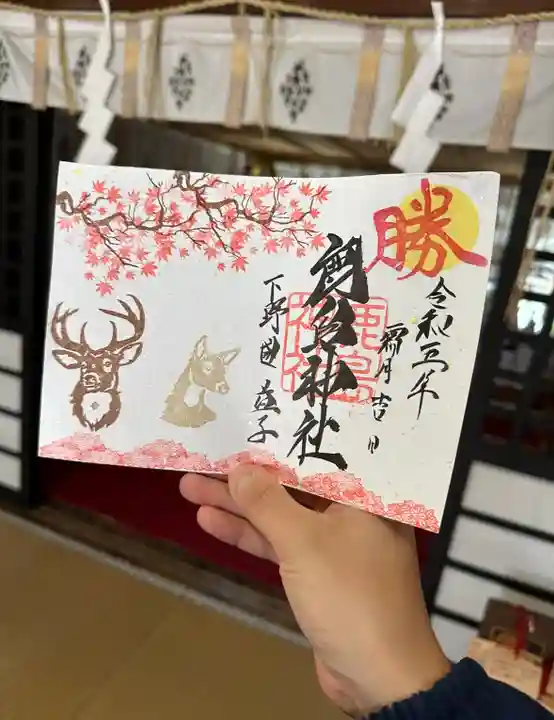 勝
令和五年
霜月吉日
鹿島神社
鹿島
神社
下野国 益子